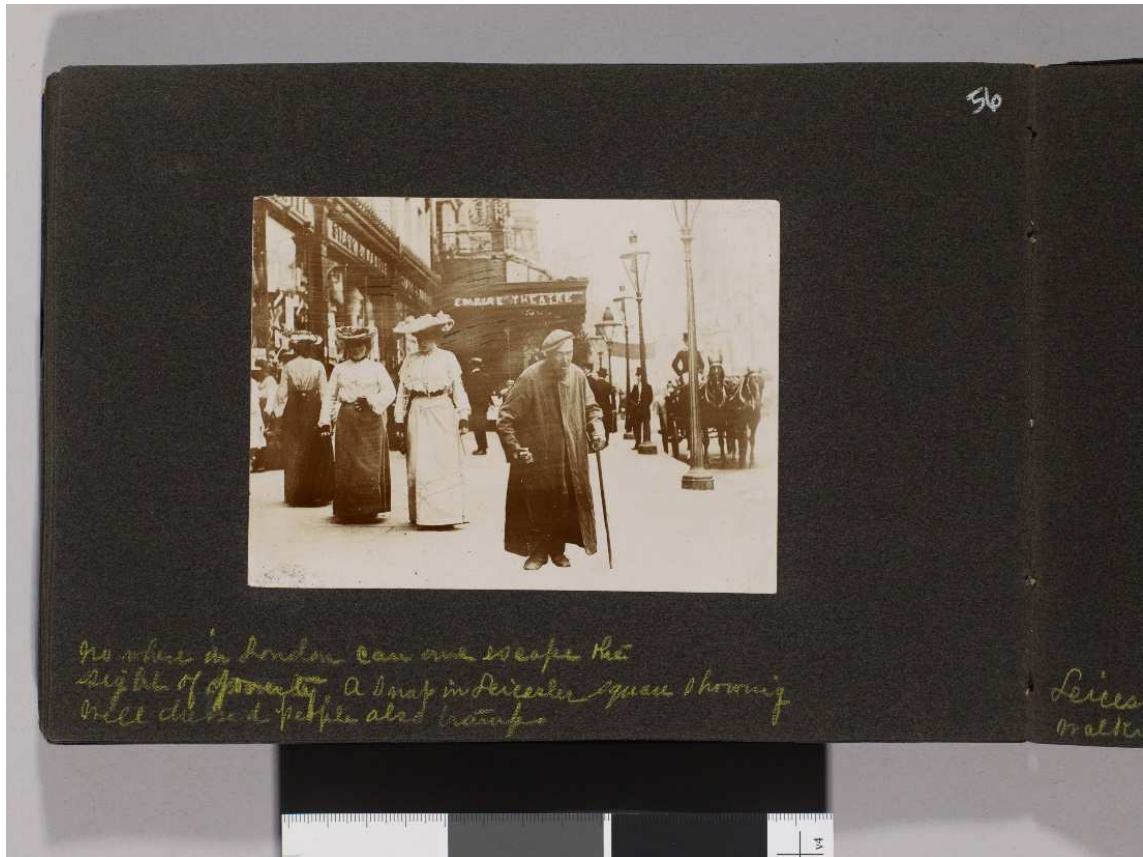 56
EMPIRE THEATRE
No where in London can one escape the
sight of poverty. A snap in Leicester square showing
well dressed people also tramp.
Leices
walki
v4